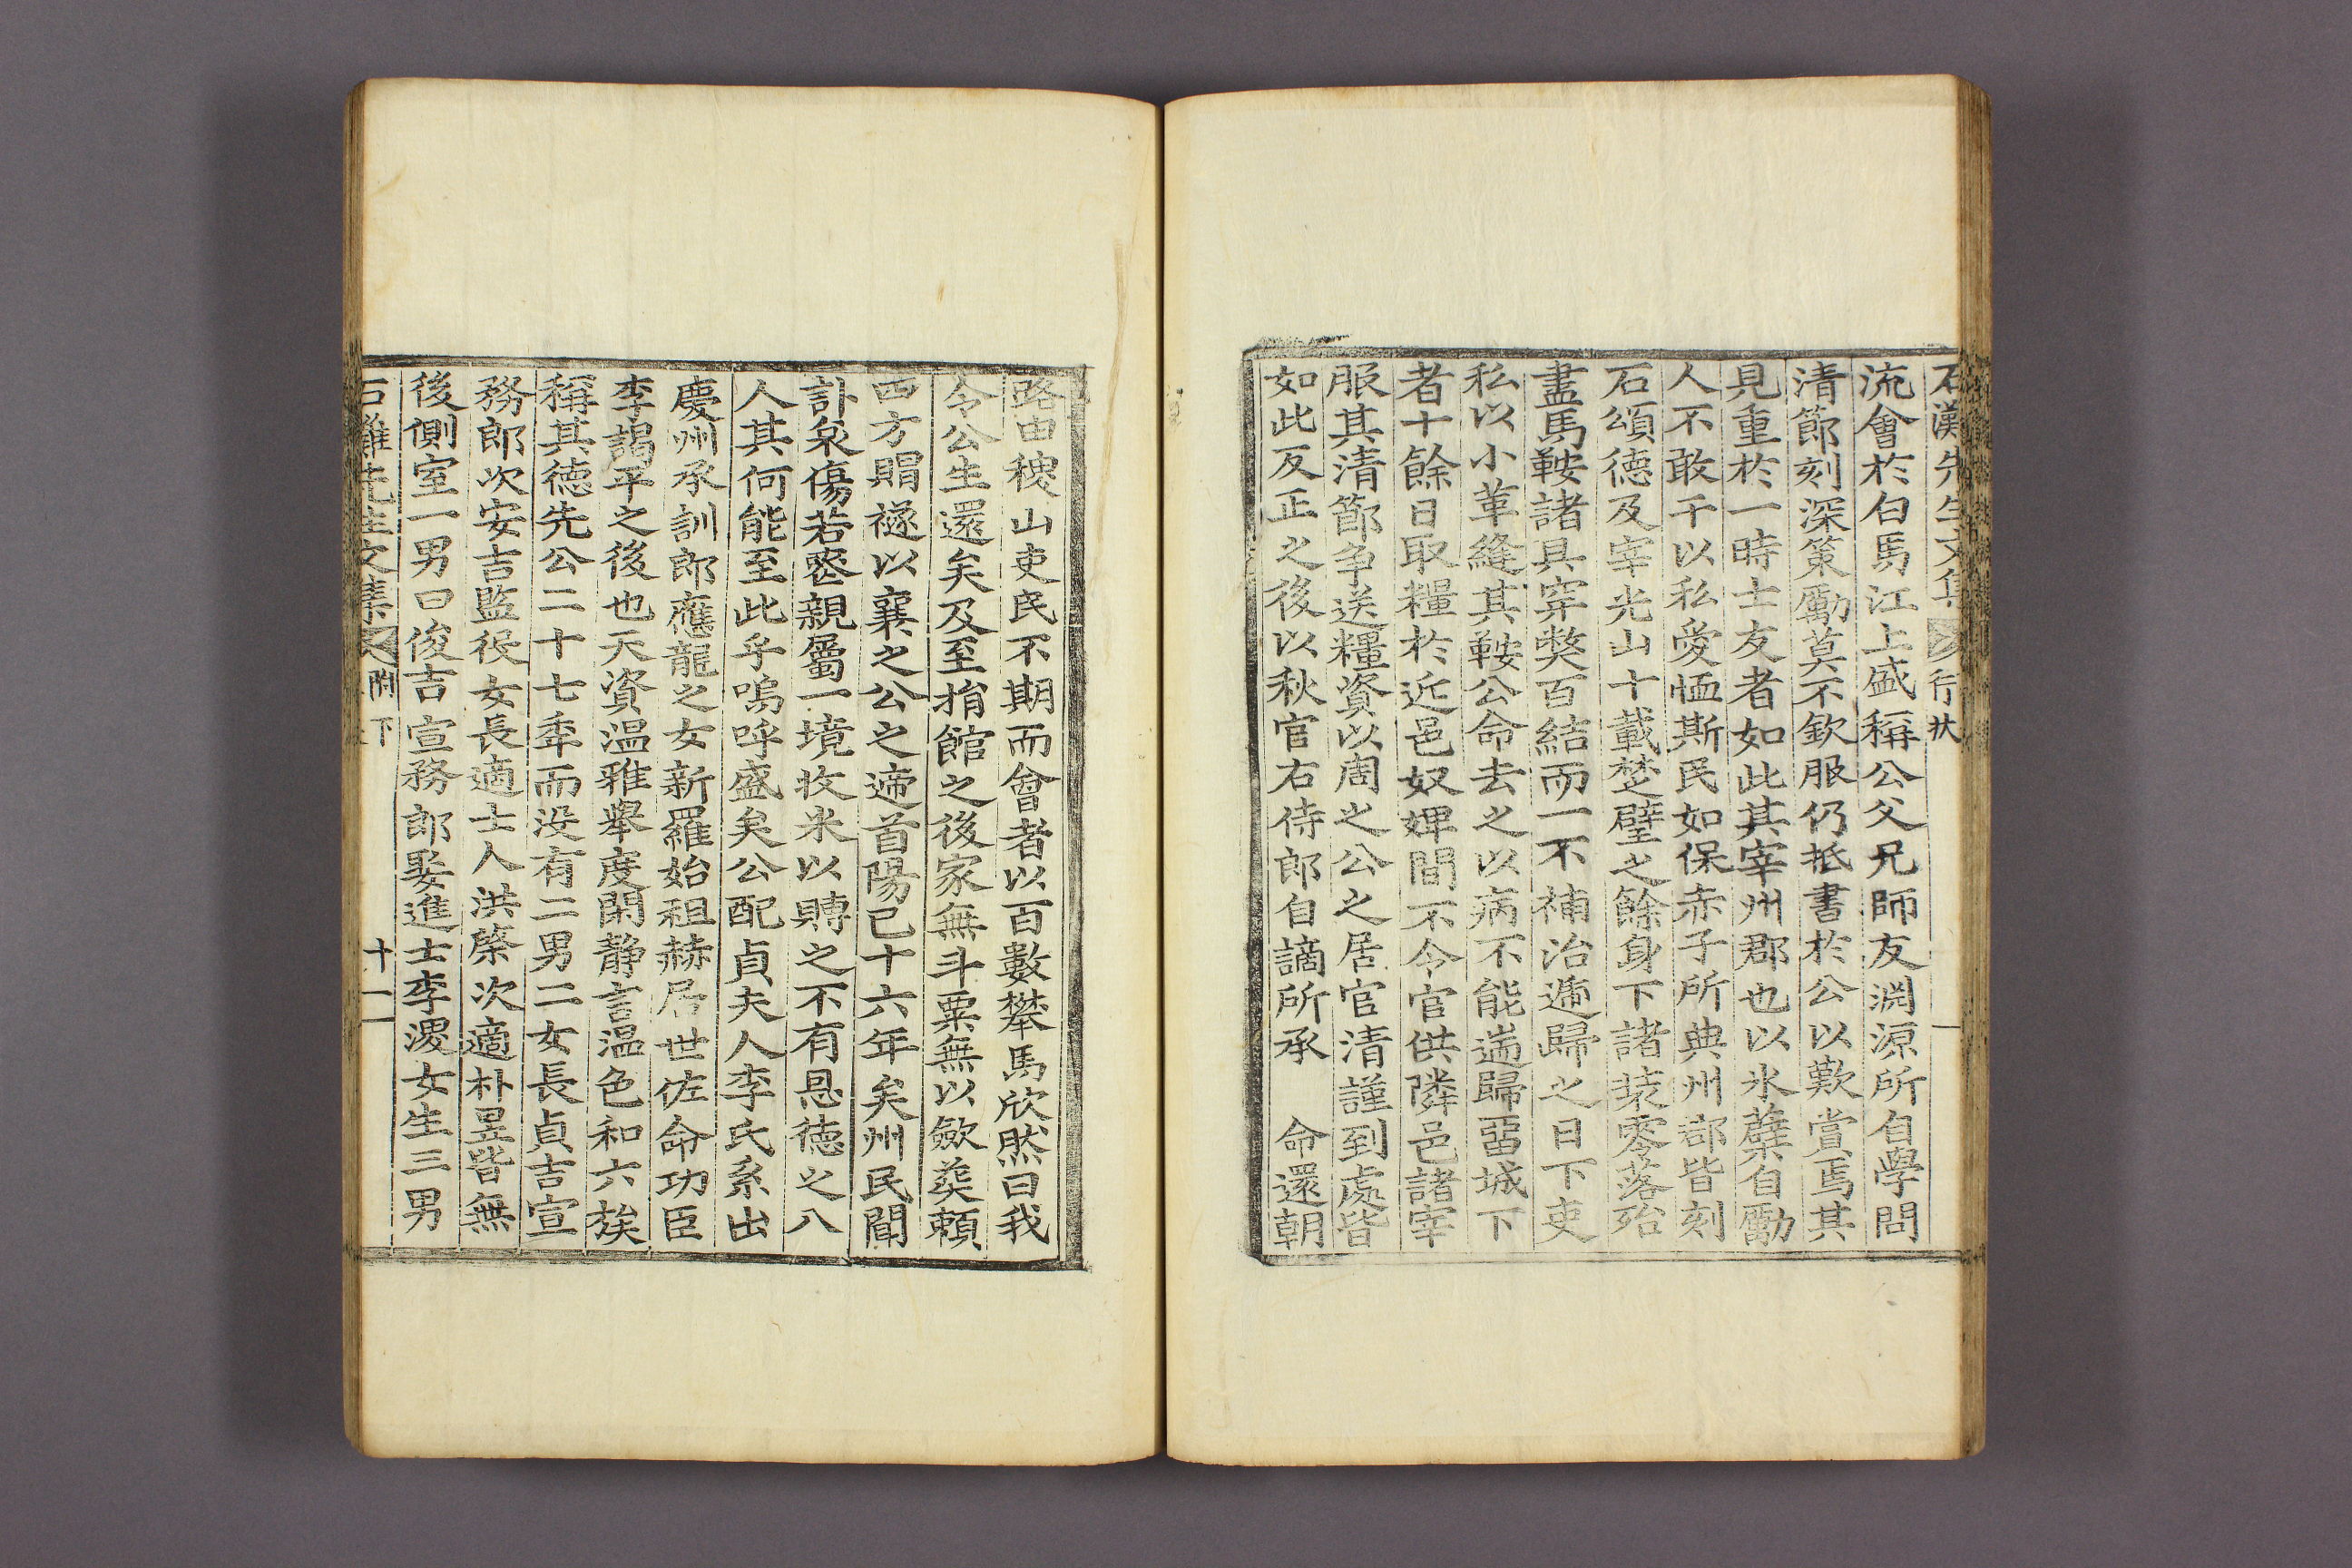 石灘先生文集 行狀
流會於白馬江上盛稱公父兄師友淵源所自學問
清節刻深策勵莫不欽服仍抵書於公以歎賞焉其
見重於一時士友者如此其宰州郡也以氷蘗自勵
人不敢干以私愛恤斯民如保赤子所典州郡皆刻
石頌德及宰光山十載焚璧之餘身下諸裝零落殆
盡馬鞍諸具穿獘百結而一不補治逓歸之日下吏
私以小革縫其鞍公命去之以病不能遄歸畱城下
者十餘日取糧於近邑奴婢間不令官供隣邑諸宰
服其清節争送糧資以周之公之居官清謹到處皆
如此反正之後以秋官右侍郎自謫所承 命還朝
路由槐山吏民不期而會者以百數攀馬欣然曰我
令公生還矣及至捐館之後家無斗粟無以斂葬賴
西方賵襚以襄之公之遆首陽已十六年矣州民聞
訃哀傷若喪親屬一境收米以賻之不有恩德之入
人其何能至此乎嗚呼盛矣公配貞夫人李氏系出
慶州承訓郎應龍之女新羅始祖赫居世佐命功臣
李謁平之後也天資温雅舉度閑静言温色和六族
稱其德先公二十七年而没有二男二女長貞吉宣
務郎次安吉監役女長適士人洪築次適朴昱皆無
後側室一男曰俊吉宣務郎娶進士李溭女生三男
石灘先生文集 附下 十一